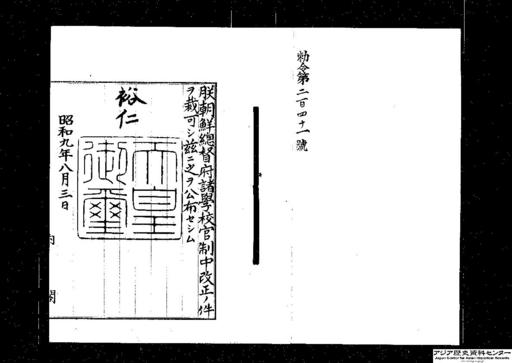 勅令第二百四十一號
朕朝鮮總督府諸學校官制中改正ノ件
ヲ裁可シ茲ニ之ヲ公布セシム
裕仁
天皇御璽
昭和九年八月三日
内閣
アジア歴史資料センター
Japan Center for Asian Historical Records